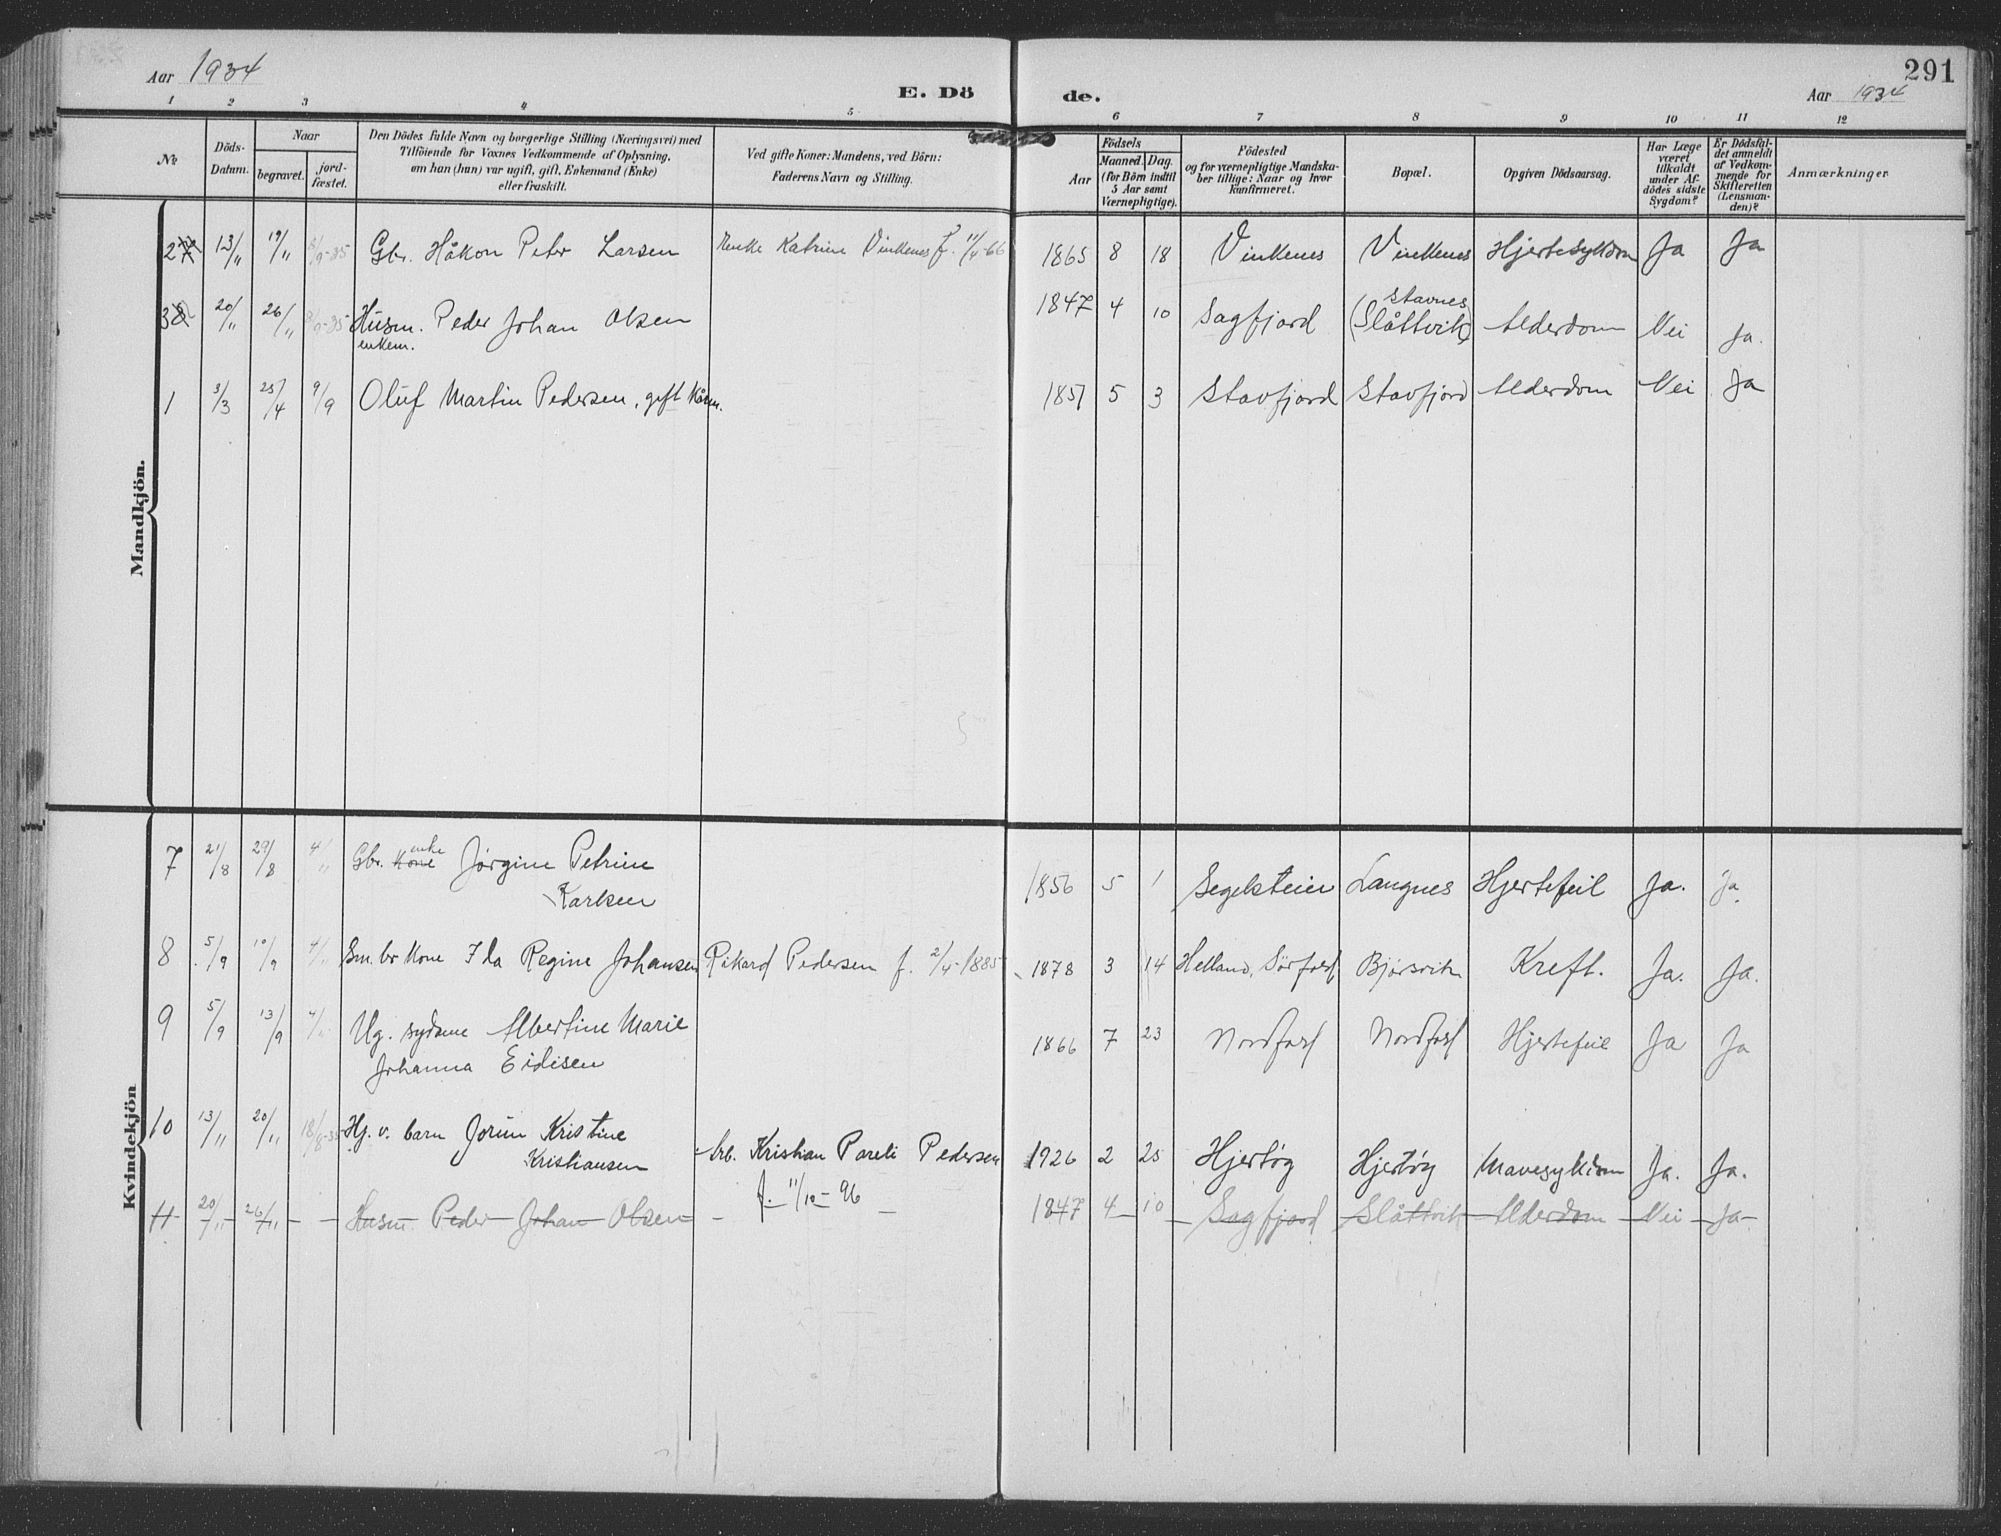 Aar 1934
E. Dö
de.
Aar 1934
291
1 2 3 4 5 6 7 8 9 10 11 12
No
Döds-
Datum.
Naar
begravet.
jord-
fæstet.
Den Dödes fulde Navn og borgerlige Stilling (Næringsvei) med
Tilföiende for Voxnes Vedkommende af Oplysning,
om han (hun) var ugift, gift, Enkemand (Enke)
eller fraskilt.
Ved gifte Koner: Mandens, ved Börn:
Faderens Navn og Stilling.
Födsels
Aar
Maaned. Dag.
(for Börn indtil
5 Aar samt
Værnepligtige).
Födested
og for værnepligtige Mandska-
ber tillige: Naar og hvor
konfirmeret.
Bopæl.
Opgiven Dödsaarsag.
Har Læge
været
tilkaldt
under Af-
dödes sidste
Sygdom?
Er Dödsfal-
det anmeldt
af Vedkom-
mende for
Skifteretten
(Lensman-
den)?
Anmærkninger
Mandkjön.
2 13/11 19/11 8/9-35 Gbr. Håkon Peter Larsen Katrine Vinkenes f. 11/4-66 1865 8 18 Vinkenes Vinkenes Hjertesykdom Ja Ja
3 20/11 26/11 8/9-35 Husm. Peder Johan Olsen 1847 4 10 Sagfjord Stavnes (Slåttvik) Alderdom Nei Ja.
enkem.
1 3/3 25/4 9/9 Oluf Martin Pedersen, gift Kårm. 1851 5 3 Stavfjord Stavfjord Alderdom Nei Ja
Kvindekjön
7 21/8 29/8 4/11 Gbr. Kone enke Jørgine Petrine
Karlsen 1856 5 1 Segelsteien Langnes Hjertefeil Ja. Ja.
8 5/9 10/9 4/11 Sm.br Kone Ida Regine Johansen Rikard Pedersen f. 2/4-1885 1878 3 14 Helland, Sørfold Bjørsvik Kreft. Ja. Ja.
9 5/9 13/9 4/11 Ug. sydame Albertine Marie
Johanna Eidisen 1866 7 23 Nordfold Nordfold Hjertefeil Ja Ja
10 13/11 20/11 18/8-35 Hj. v. barn Jorun Kristine
Kristiansen Arb. Kristian Pareli Pedersen
f. 11/12-96 1926 2 25 Hjertøy Hjertøy Mavesykdom Ja. Ja.
11 20/11 26/11 Husm Peder Johan Olsen 1847 4 10 Sagfjord Slåttvik Alderdom Nei Ja